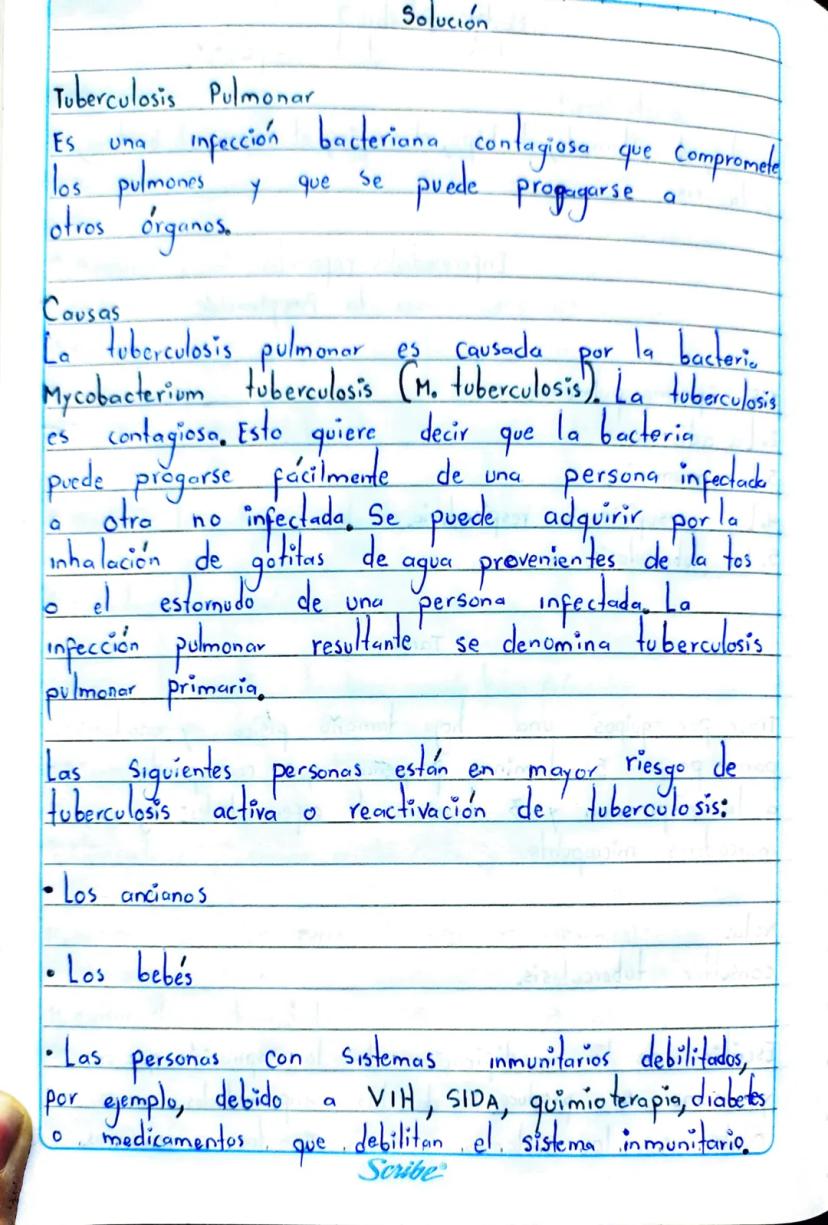 Solución
Tuberculosis Pulmonar
Es una infección bacteriana contagiosa que compromete
los pulmones y que se puede propagarse a
otros órganos.
Causas
La tuberculosis pulmonar es causada por la bacteria
Mycobacterium tuberculosis (M. tuberculosis). La tuberculosis
es contagiosa. Esto quiere decir que la bacteria
puede progarse fácilmente de una persona infectada
a otra no infectada. Se puede adquirir por la
inhalación de gotitas de agua provenientes de la tos
o el estornudo de una persona infectada. La
infección pulmonar resultante se denomina tuberculosis
pulmonar primaria.
Las siguientes personas están en mayor riesgo de
tuberculosis activa o reactivación de tuberculosis:
• Los ancianos
• Los bebés
• Las personas con sistemas inmunitarios debilitados,
por ejemplo, debido a VIH, SIDA, quimioterapia, diabetes
o medicamentos que debilitan el sistema inmunitario.
Scribe